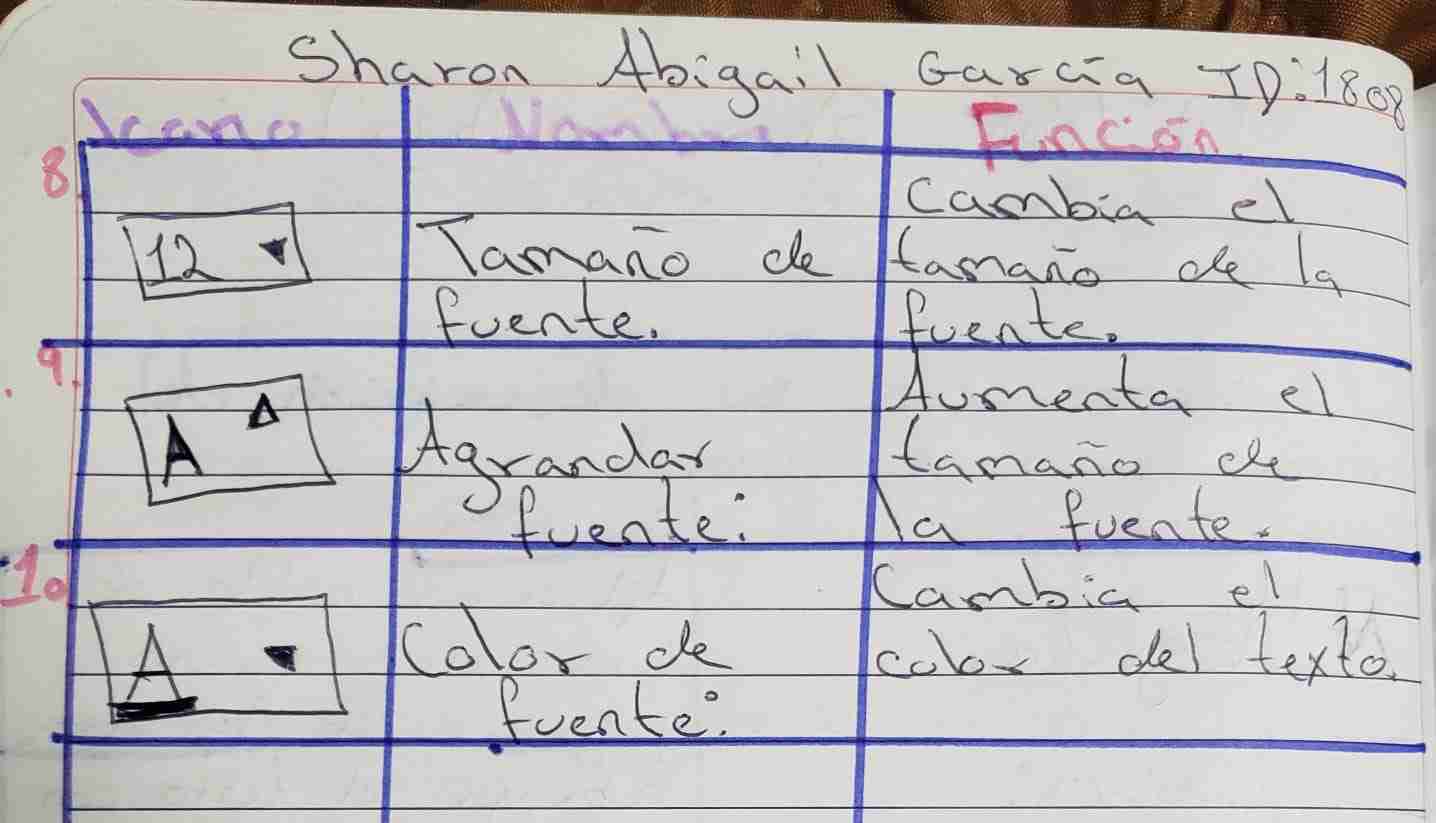 Sharon Abigail García ID:1808
Icono Nombre Función
8
12
Tamaño de
fuente.
Cambia el
tamaño de la
fuente.
9.
A
Agrandar
fuente:
Aumenta el
tamaño de
la fuente.
10
A
Color de
fuente:
Cambia el
color del texto.